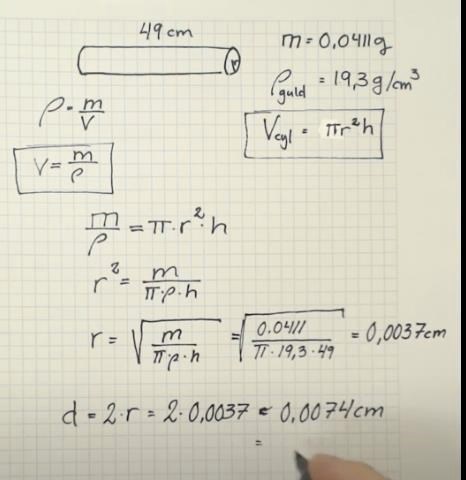 49 cm
r
m = 0,0411g
ρguld = 19,3 g/cm³
ρ = m/V
Vcyl = πr²h
V = m/ρ
m/ρ = π·r²·h
r² = m/(π·ρ·h)
r = √(m/(π·ρ·h)) = √(0.0411/(π·19,3·49)) = 0,0037cm
d = 2·r = 2·0,0037 = 0,0074cm
=